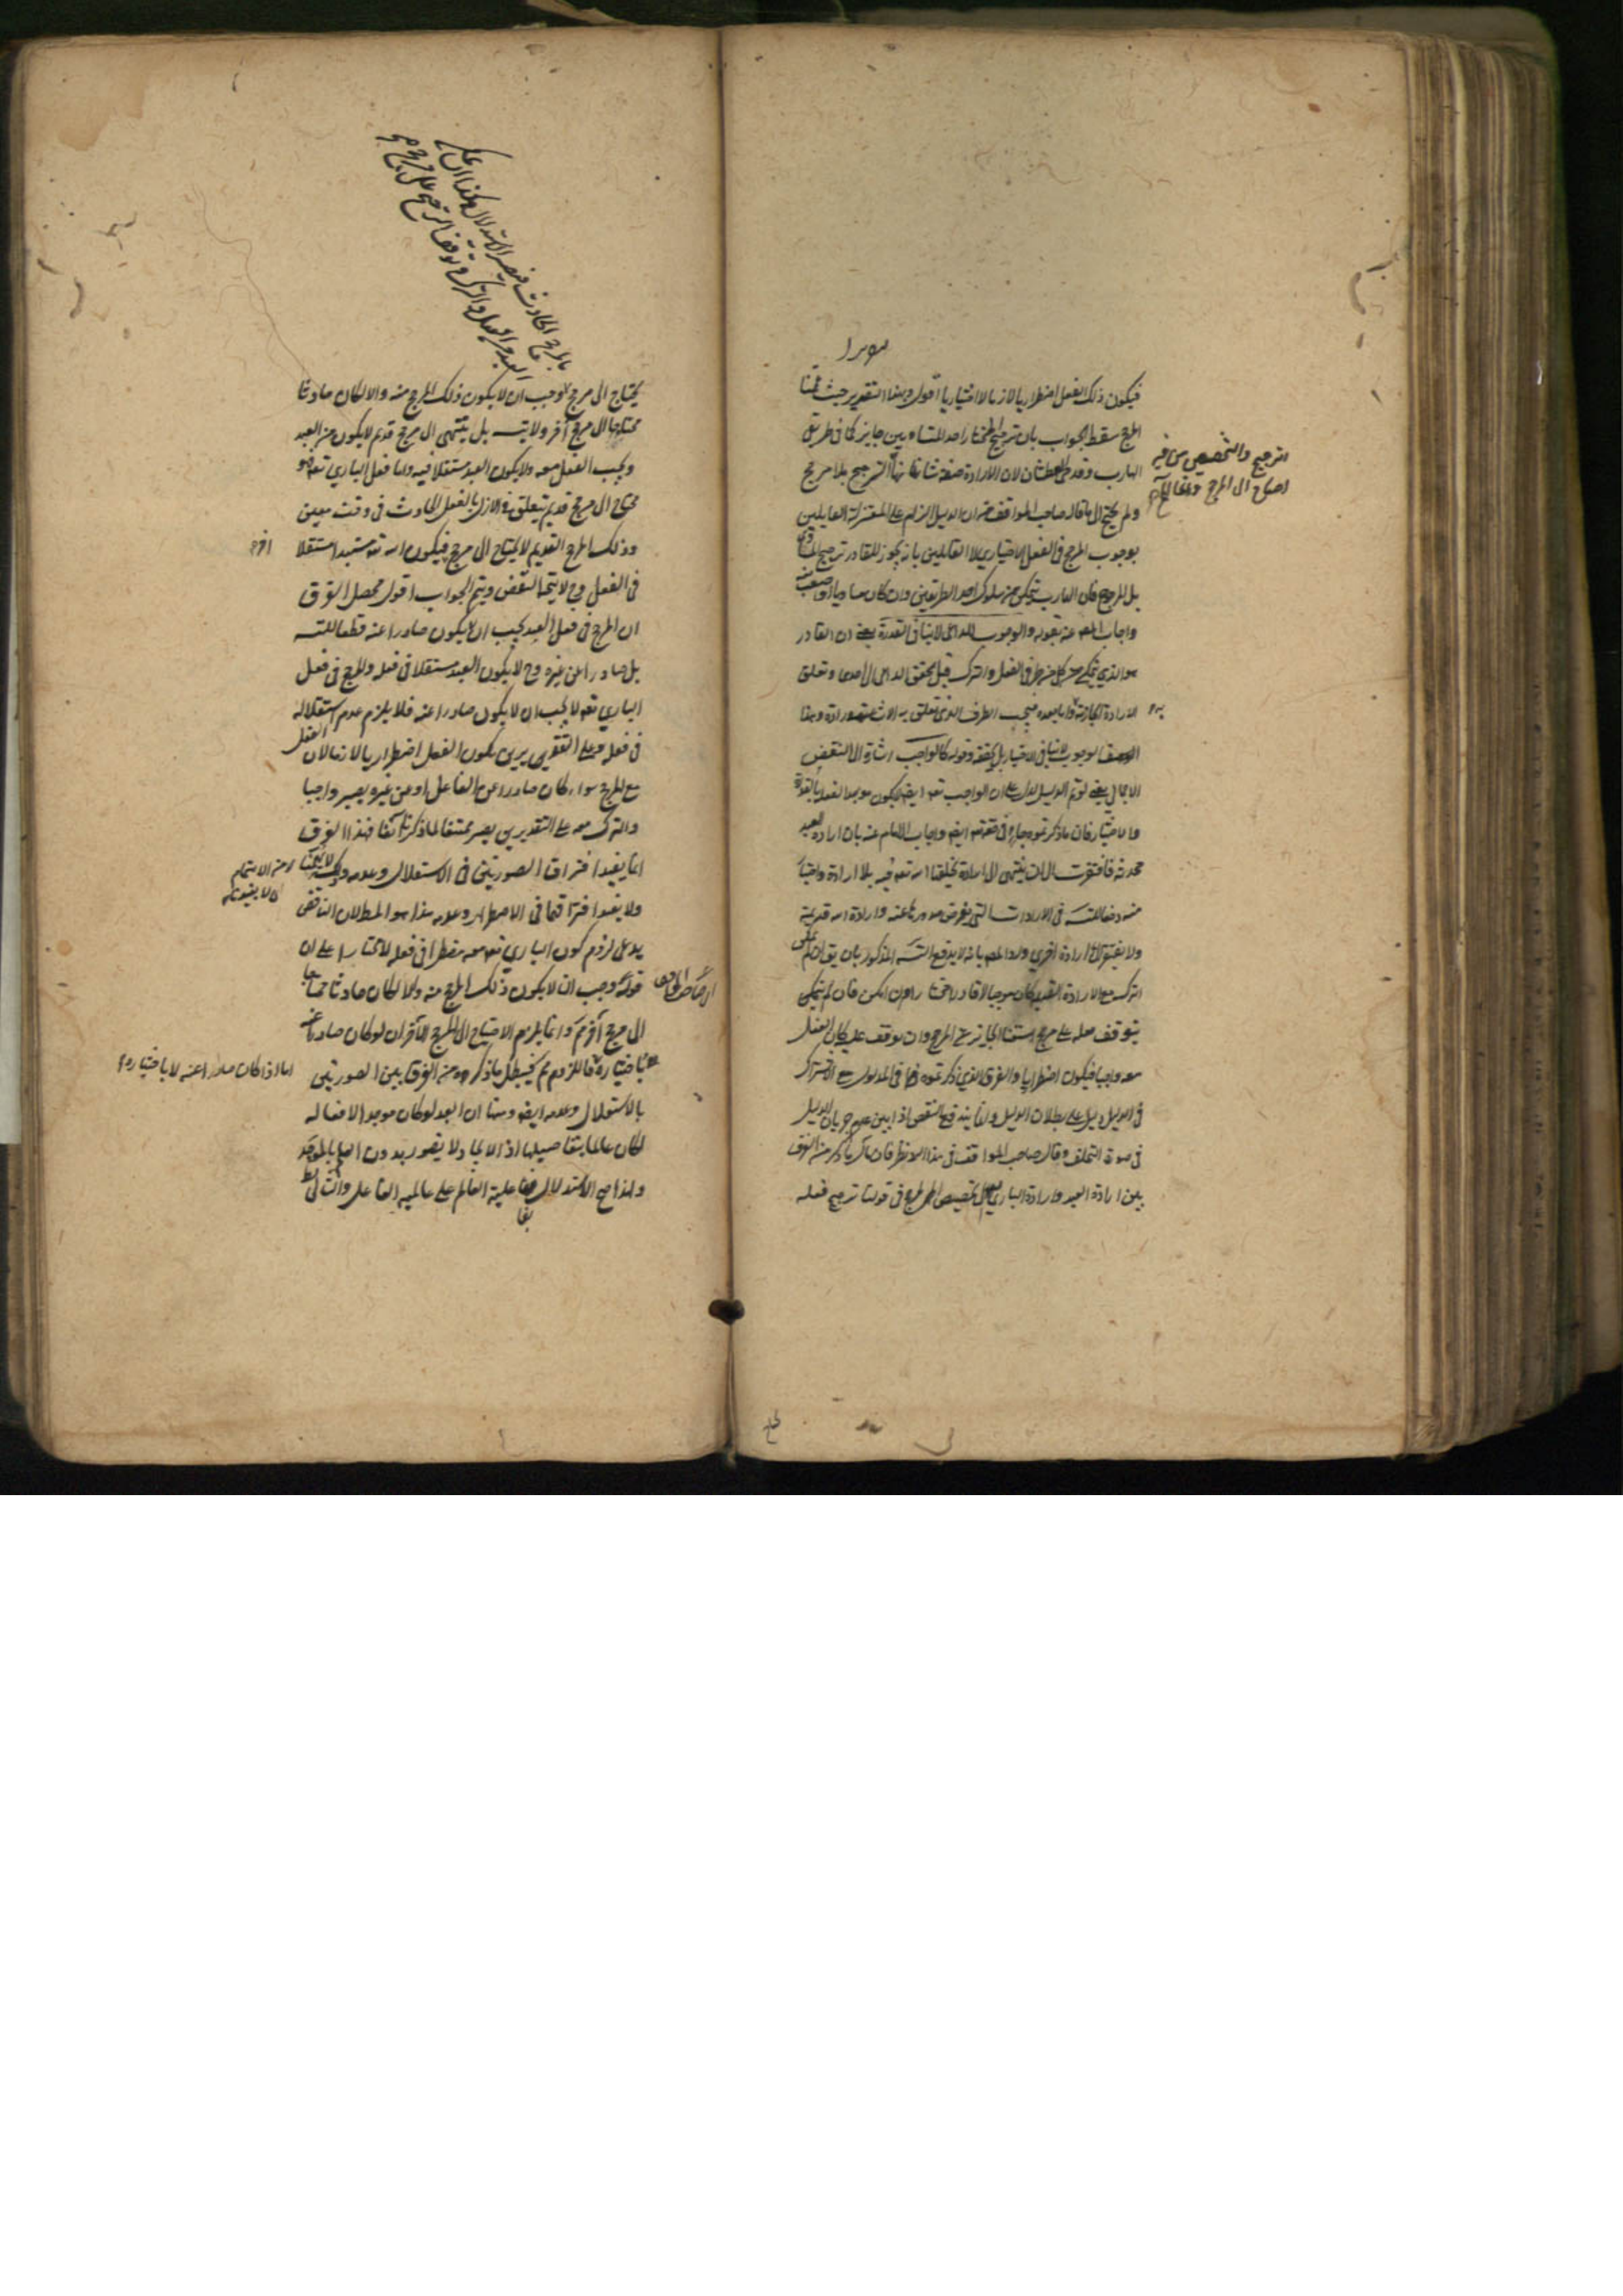 فيكون ذلك الفعل اضطراريا لازما لا اختياريا اقول وبهذا التقدير حيث
المرجح سقط الجواب بان ترجيح المختار احد المتساويين جايز كما في طريقي
الهارب وقدحي العطشان لان الارادة صفة شانها الترجيح بلا مرجح
ولم يحتج الى ما قاله صاحب المواقف من ان الدليل الزام على المعتزلة القايلين
بوجوب المرجح في الفعل الاختياري لا القايلين بانه يجوز للقادر ترجيح المساوي
بل المرجوح فان الهارب يتمكن من سلوك احد الطريقين وان كان مساويا او اصعب منه
واجاب المصـ عنه بقوله والوجوب للداعي لا ينافي القدرة يعني ان القادر
هو الذي يتمكن من كل من طرفي الفعل والترك قبل تحقق الداعي الى احدهما وتعلق
الارادة الجازمة واما بعده فيجب الطرف الذي تعلق به الارادة وهذا
الوجوب لا ينافي الاختيار بل يحققه وقوله كالواجب اشارة الى النقض
الاجمالي يعني لو تم الدليل لدل على ان الواجب تعـ ايضـ لا يكون موجدا لفعله بالقدرة
والاختيار فان ما ذكرتموه جار في حقه تعـ ايضـ واجاب الامام عنه بان ارادة العبد
محدثة فافتقرت الى ان ينتهي الى ارادة يخلقها الله تعـ فيه بلا ارادة واختيار
منه دفعا للتسـ في الارادات التي يفرض صدورها عنه وارادة الله قديمة
ولا يفتقر الى ارادة اخرى ورد المصـ بانه لا يدفع التقسيم المذكور بان يقال ان لم يمكن
الترك مع الارادة القديمة كان موجبا لا قادرا مختارا وان امكن فان لم
يتوقف فعله على مرجح استغنى الجايز عن المرجح وان توقف عليه كان الفعل
معه واجبا فيكون اضطراريا والفرق الذي ذكرتموه في المدلول مع الاشتراك
في الدليل دليل على بطلان الدليل وانما يندفع النقض اذا بين عدم جريان الدليل
في صورة التخلف وقال صاحب المواقف في هذا الرد نظر فان مآل ما ذكر من الفرق
بين ارادة العبد وارادة الباري الى تخصيص المرجح في قولنا ترجيح فعله
الترجيح والتخصيص من غير
احتياج الى المرجح وانما
بالمرجح الحادث فيصير الاستدلال هكذا ان تمكن
العبد من الفعل والترك وتوقف الترجيح على مرجح
يحتاج الى مرجح وجب ان لا يكون ذلك المرجح منه والا لكان حادثا
محتاجا الى مرجح آخر ولا يتسـ بل ينتهي الى مرجح قديم لا يكون من العبد
ويجب الفعل معه ولا يكون العبد مستقلا فيه واما فعل الباري تعـ فهو
محتاج الى مرجح قديم يتعلق في الازل بالفعل الحادث في وقت معين
وذلك المرجح القديم لا يحتاج الى مرجح آخر فيكون الله تعـ مستبدا مستقلا
في الفعل وح لا يتجه النقض ويتم الجواب اقول محصل الفرق
ان المرجح في فعل العبد يجب ان لا يكون صادرا عنه قطعا للتسـ
بل صادرا عن غيره وح لا يكون العبد مستقلا في فعله والمرجح في فعل
الباري تعـ لا يجب ان لا يكون صادرا عنه فلا يلزم عدم استقلاله
في فعله وعلى التقديرين يكون الفعل اضطراريا لازما لان الفعل
مع المرجح سواء كان صادرا عن الفاعل او عن غيره يصير واجبا
والترك معه على التقديرين يصير ممتنعا لما ذكرنا آنفا فهذا الفرق
انما يفيد افتراق الصورتين في الاستقلال وعدمه
ولا يفيد افتراقهما في الاضطرار وعدمه هذا هو المطلوب لان الناقض
يدعي لزوم كون الباري تعـ مضطرا في فعله لا مختارا على ان
قوله وجب ان لا يكون ذلك المرجح منه والا لكان حادثا محتاجا
الى مرجح آخر مـ وانما يلزم الاحتياج الى المرجح الآخر ان لو كان صادرا عنه
باختياره اما اذا كان صادرا عنه لا باختياره فاللزوم مـ فيبطل ما ذكروه من الفرق بين الصورتين
بالاستقلال وعدمه ايضـ ومنها ان العبد لو كان موجدا لافعاله
لكان عالما بتفاصيلها اذ الايجاد لا يتصور بدون العلم بالموجد
ولهذا صح الاستدلال بفاعلية العالم على عالمية الفاعل والتالي بط